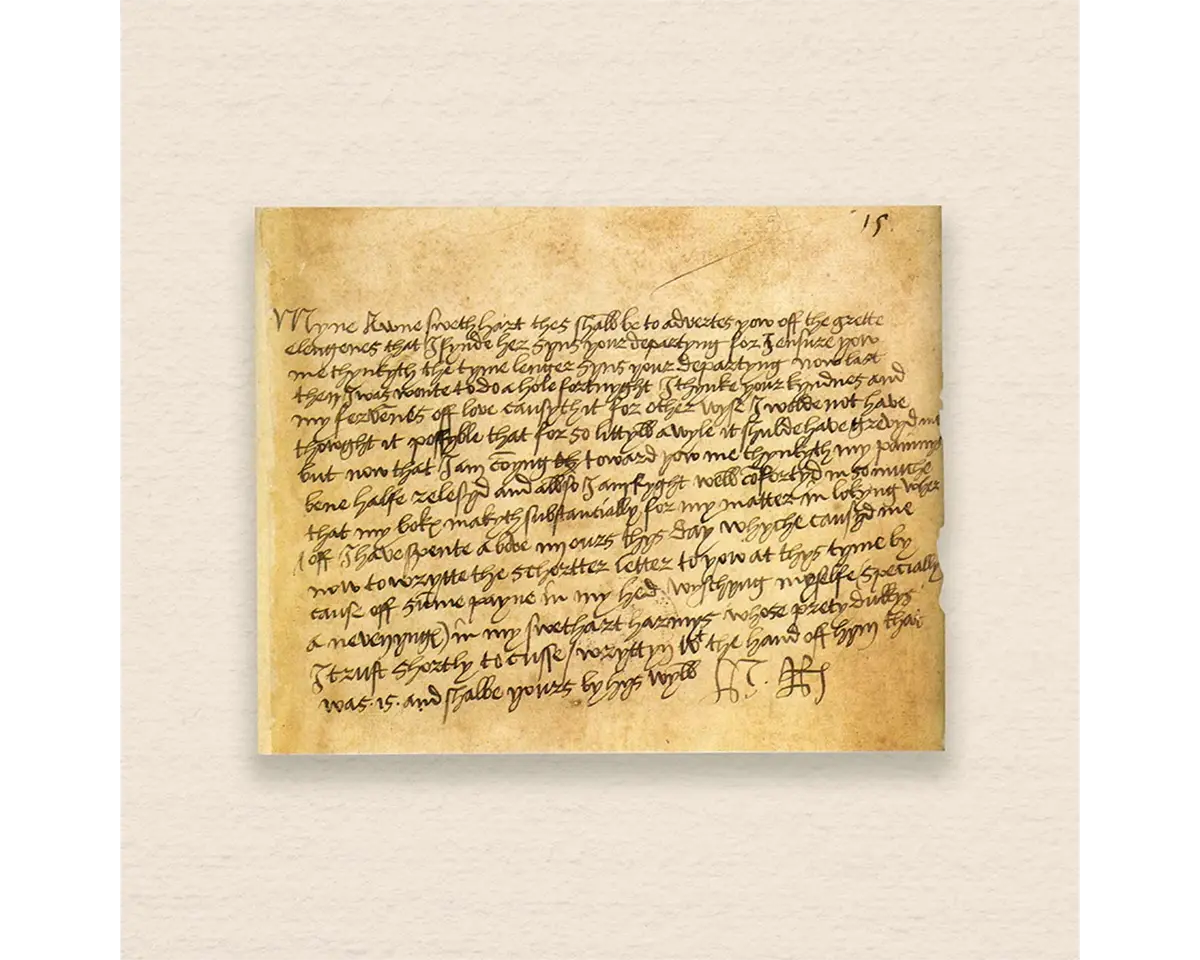 15.
Myne Awne swethhart thes shalbe to advertes yow off the grette
elengenes that I fynde her syns your departyng for I ensure yow
me thynkyth the tyme lenger syns your departyng now last
then I was wonte to do a hole fortnyght I thynke your kyndnes and
my fervēnes off love causyth it for other wyse I wolde not have
thowght it possyble that for so littyll a wyle it shulde have grevyd me
but now that I am cōyng toward yow me thynkyth my paynnys
bene halfe relesyd and allso I am ryght well cōfortyd in so muche
that my bokx makyth substancially for my matter in lokyng wher
off I have spente above iiij ours thys day whyche causyd me
now to wrytte the schortter letter to yow at thys tyme by
cause off sūme payne in my hed wyschyng my selfe (specially
a nevenyngx) in my swethart harmys whose prety dukkys
I trust shortly to cusse / wryttyn wt the hand off hym that
was. is. and shalbe yours by hys wyll H. Rx